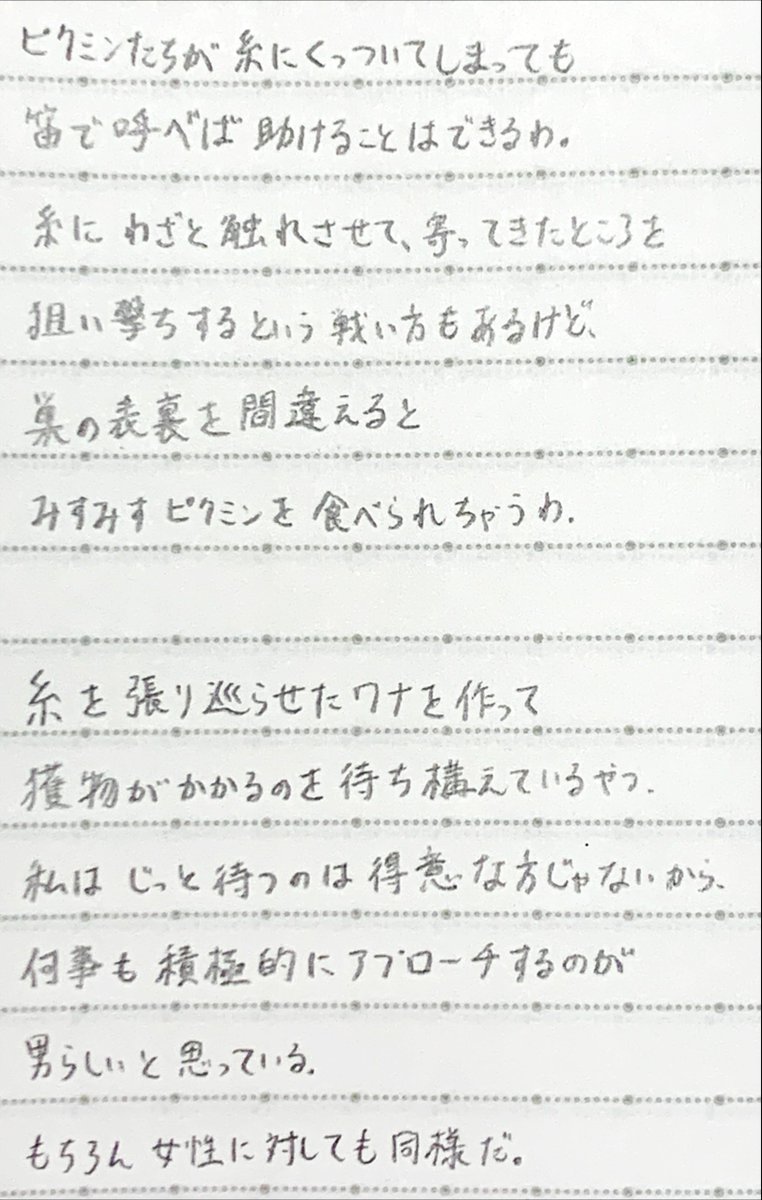 ピクミンたちが糸にくっついてしまっても
笛で呼べば助けることはできるわ。
糸にわざと触れさせて、寄ってきたところを
狙い撃ちするという戦い方もあるけど、
巣の表裏を間違えると
みすみすピクミンを食べられちゃうわ.
糸を張り巡らせたワナを作って
獲物がかかるのを待ち構えているやつ.
私はじっと待つのは得意な方じゃないから、
何事も積極的にアプローチするのが
男らしいと思っている.
もちろん女性に対しても同様だ。